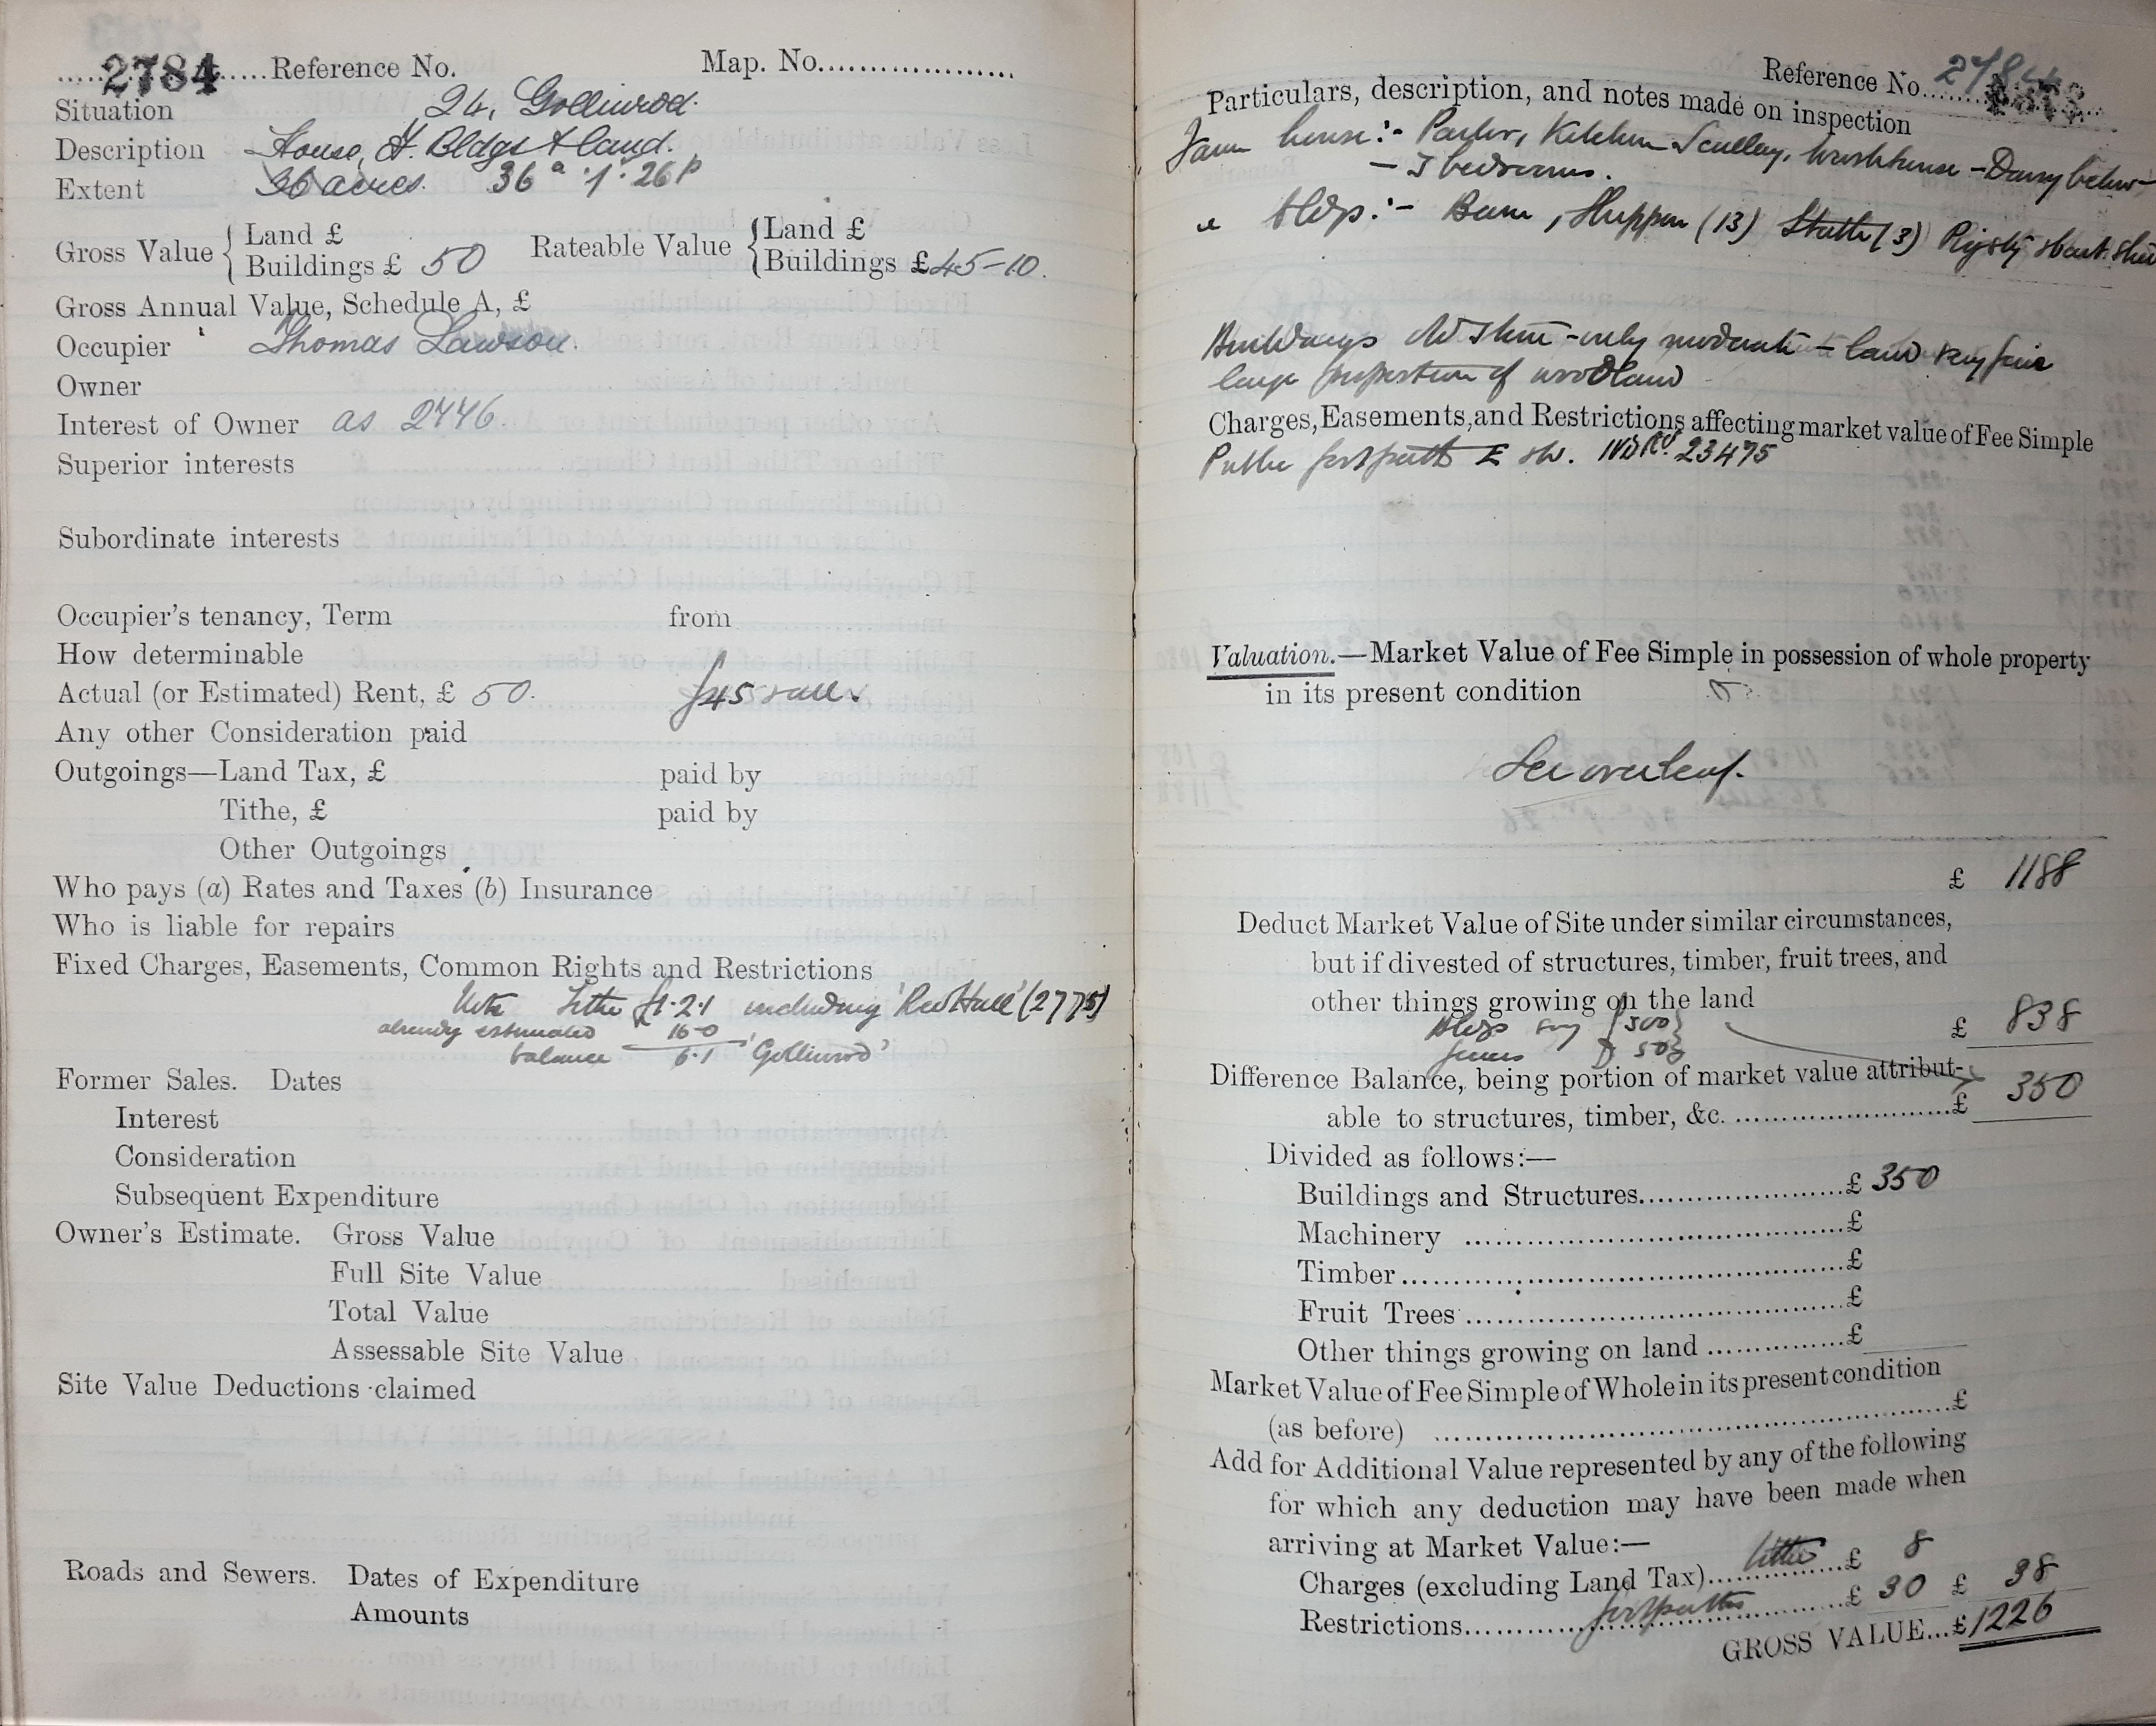 2784 Reference No. Map. No.
Situation 24, Gollinrod.
Description House, F. Bldgs & land.
Extent 36 acres. 36ᵃ 1ʳ 26ᵖ
Gross Value { Land £
Buildings £ 50
Rateable Value { Land £
Buildings £45-10.
Gross Annual Value, Schedule A, £
Occupier Thomas Lawson.
Owner
Interest of Owner as 2446.
Superior interests
Subordinate interests
Occupier's tenancy, Term from
How determinable
Actual (or Estimated) Rent, £ 50. £45
Any other Consideration paid
Outgoings—Land Tax, £ paid by
Tithe, £ paid by
Other Outgoings
Who pays (a) Rates and Taxes (b) Insurance
Who is liable for repairs
Fixed Charges, Easements, Common Rights and Restrictions
Note Tithe £1.2.1 including 'Red Hall' (2775)
already estimated 16-0
balance 6.1 'Gollinrod'
Former Sales. Dates
Interest
Consideration
Subsequent Expenditure
Owner's Estimate. Gross Value
Full Site Value
Total Value
Assessable Site Value
Site Value Deductions claimed
Roads and Sewers. Dates of Expenditure
Amounts
Reference No 2784
Particulars, description, and notes made on inspection
Farm house:- Parlor, Kitchen Scullery, Washhouse - Dairy below -
- 3 bedrooms.
" bldgs:- Barn, Shippon (13) Stable (3) Pigsty & cart shed
Buildings old stone - only moderate - land very fair
large proportion of woodland
Charges, Easements, and Restrictions affecting market value of Fee Simple
Public footpath £ 23475
Valuation.—Market Value of Fee Simple in possession of whole property
in its present condition
See overleaf.
£ 1188
Deduct Market Value of Site under similar circumstances,
but if divested of structures, timber, fruit trees, and
other things growing on the land
Bldgs say £300
fences £ 50
£ 838
Difference Balance, being portion of market value attribut-
able to structures, timber, &c. £ 350
Divided as follows:—
Buildings and Structures £ 350
Machinery £
Timber £
Fruit Trees £
Other things growing on land £
Market Value of Fee Simple of Whole in its present condition
(as before) £
Add for Additional Value represented by any of the following
for which any deduction may have been made when
arriving at Market Value:—
Charges (excluding Land Tax) tithe £ 8
Restrictions footpaths £ 30 £ 38
GROSS VALUE...£1226